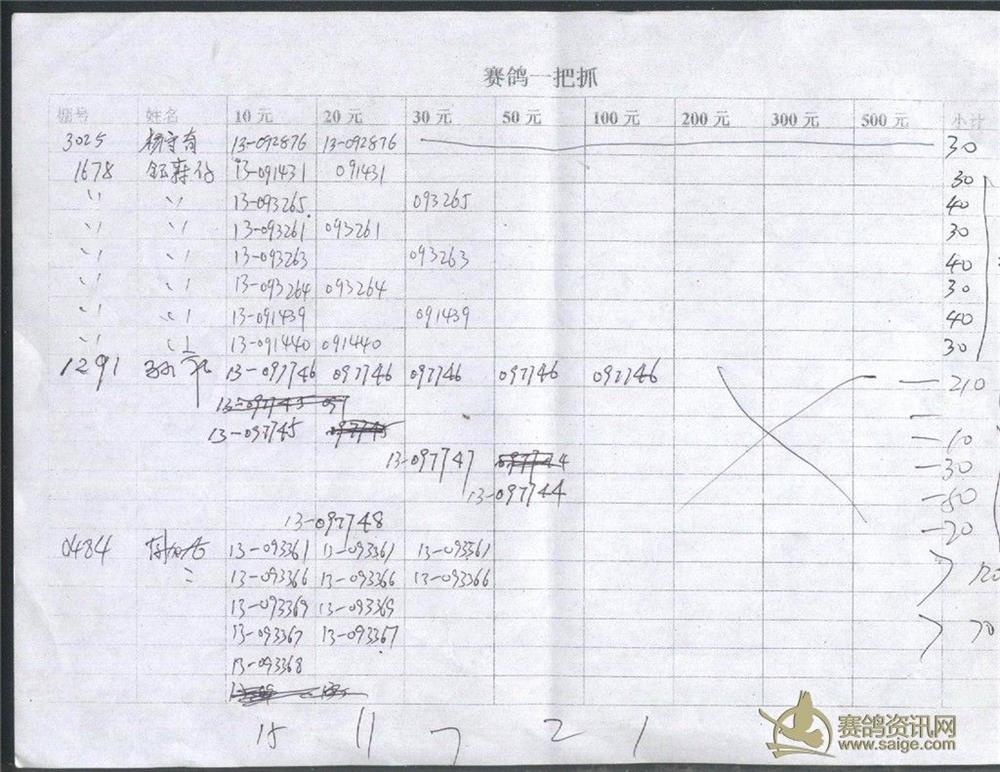 赛鸽一把抓
棚号 姓名 10 元 20 元 30 元 50 元 100 元 200 元 300 元 500 元 小计
3025 13-092876 13-092876 30
1678 13-091431 091431 30
〃 〃 13-093265 093265 40
〃 〃 13-093261 093261 30
〃 〃 13-093263 093263 40
〃 〃 13-093264 093264 30
〃 〃 13-091439 091439 40
〃 〃 13-091440 091440 30
1291 13-097746 097746 097746 097746 097746 — 210
13-097745 097745 -10
13-097747 097744 -30
13-097744 -50
13-097748 -20
0484 13-093361 13-093361 13-093361
13-093366 13-093366 13-093366 120
13-093369 13-093369
13-093367 13-093367 70
13-093368
15 11 7 2 1
赛鸽资讯网
www.saige.com